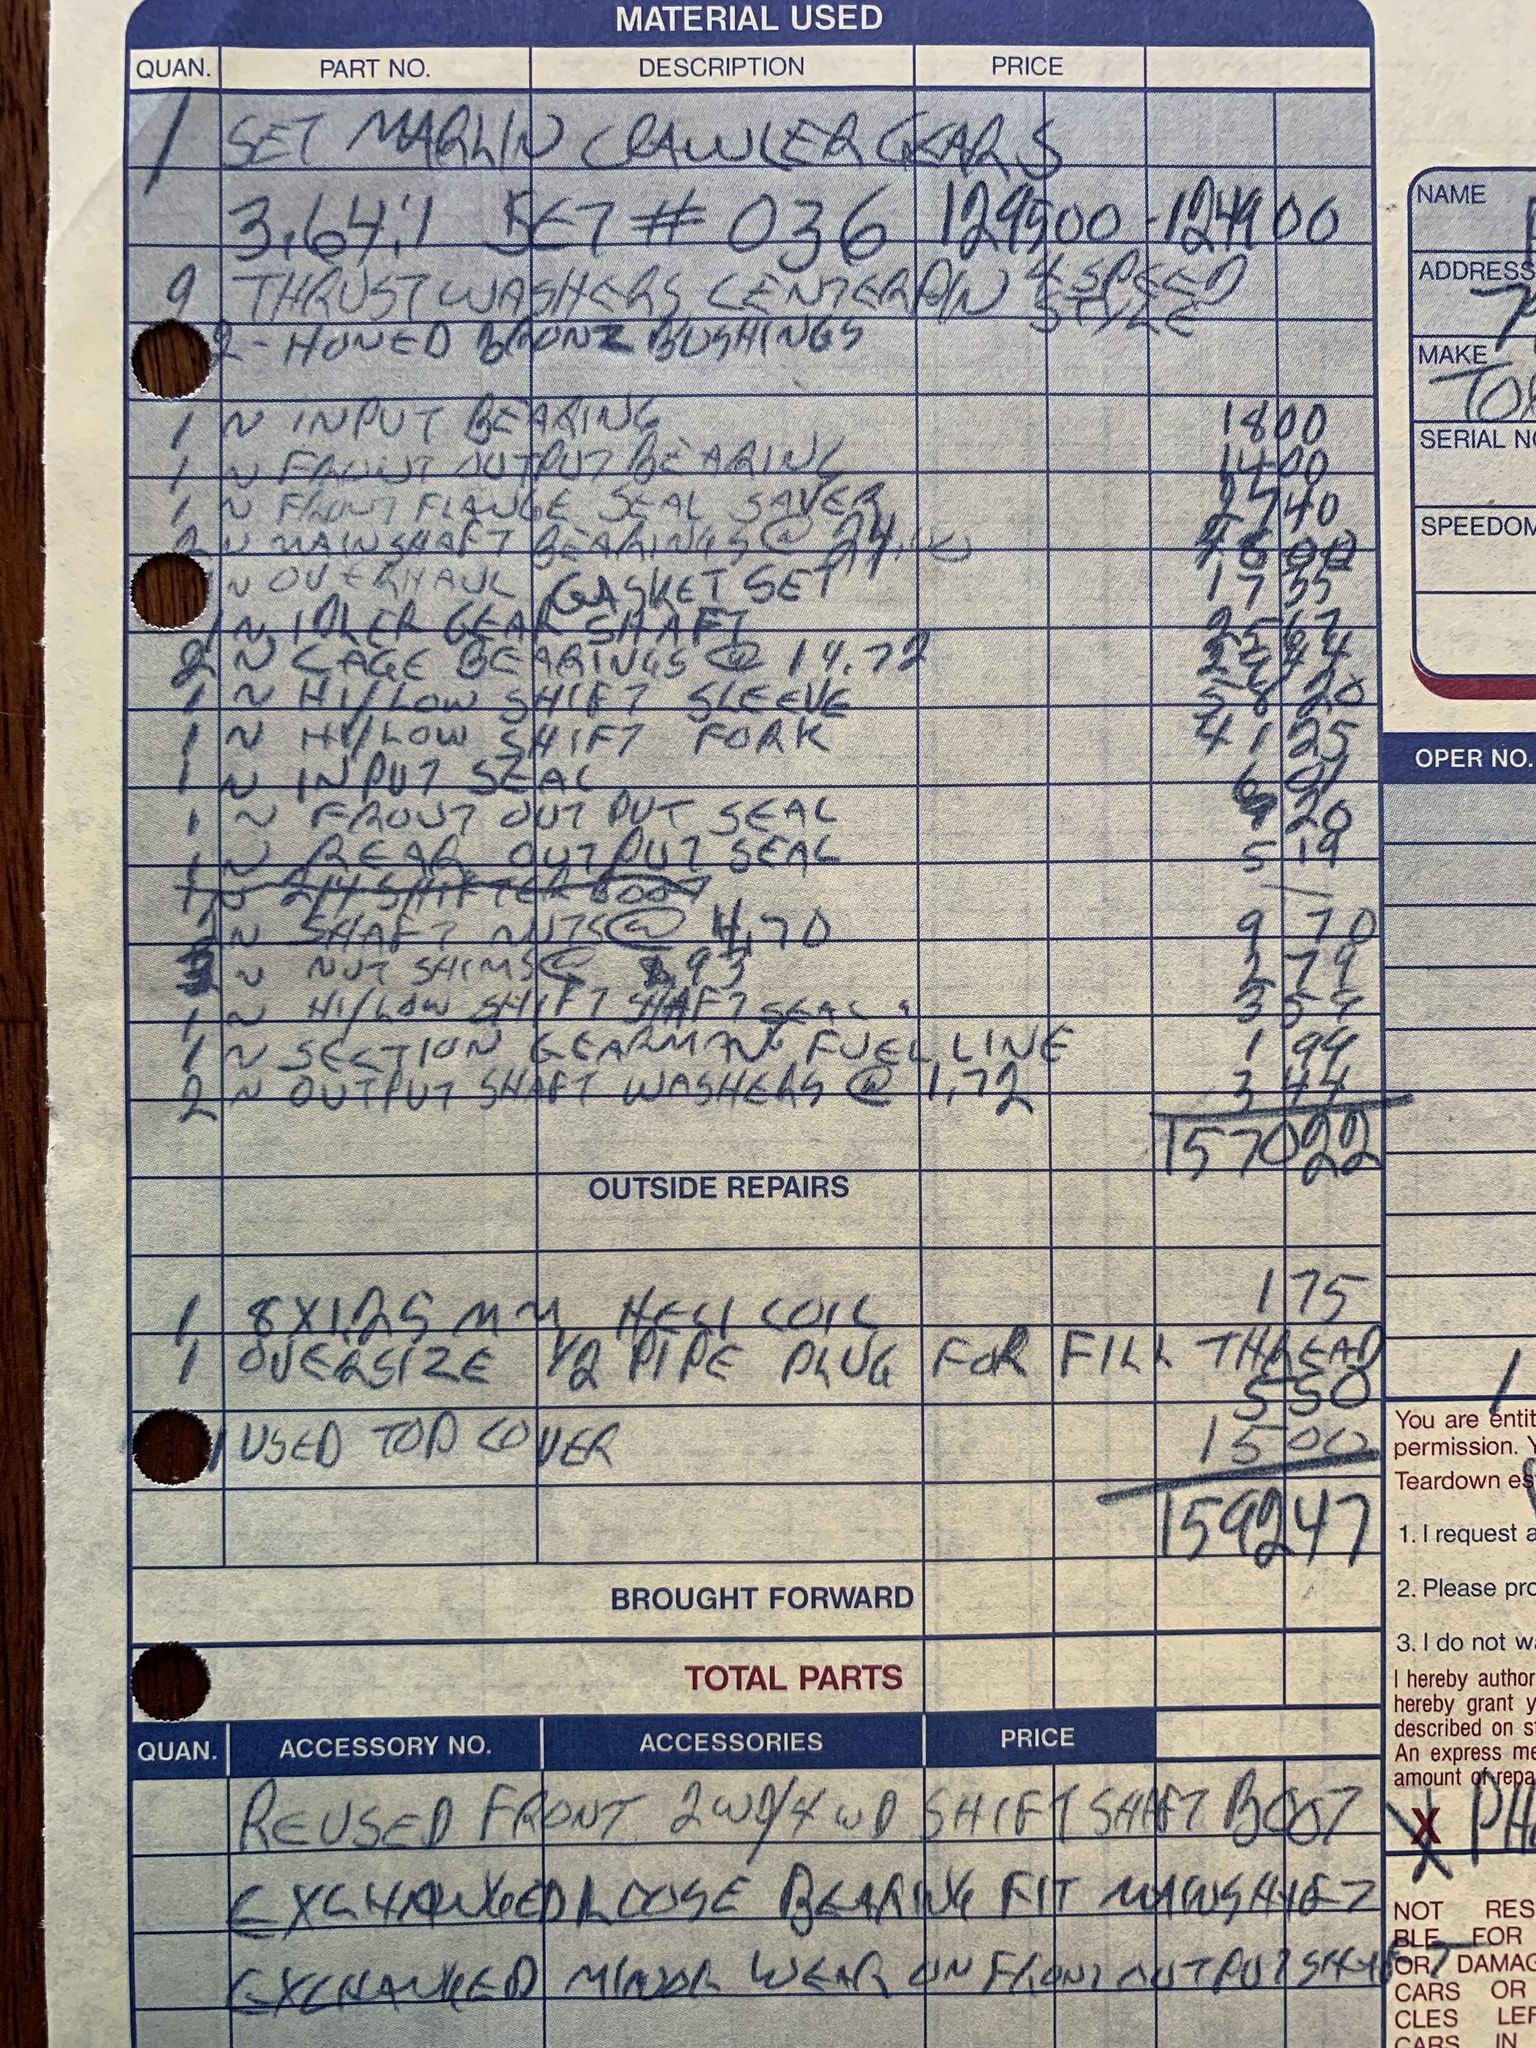 MATERIAL USED
QUAN. PART NO. DESCRIPTION PRICE
1 SET MARLIN CRAWLER GEARS
3.64:1 SET # 036 129900 - 124900
9 THRUST WASHERS CENTER PIN 4 SPEED STYLE
2 - HONED BRONZ BUSHINGS
1 ~ INPUT BEARING 1800
1 ~ FRONT OUTPUT BEARING 1400
1 ~ FRONT FLANGE SEAL SAVER 2740
2 ~ MAINSHAFT BEARINGS @ 24.00 4800
~ OVERHAUL GASKET SET 1755
1 ~ IDLER GEAR SHAFT
2 ~ CAGE BEARINGS @ 14.72 2944
1 ~ HI/LOW SHIFT SLEEVE 5820
1 ~ HI/LOW SHIFT FORK 4125
1 ~ INPUT SEAL 601
1 ~ FRONT OUTPUT SEAL 20
1 ~ REAR OUTPUT SEAL 519
1 ~ 2/4 SHIFTER BOOT
2 ~ SHAFT NUTS @ 4.70 9 70
3 ~ NUT SHIMS @ .93 2 79
1 ~ HI/LOW SHIFT SHAFT SEAL 3 59
1 ~ SECTION GEARMANG FUEL LINE 1 99
2 ~ OUTPUT SHAFT WASHERS @ 1.72 3 44
157022
OUTSIDE REPAIRS
1 8X1.25 MM HELI COIL 1 75
1 OVERSIZE 1/2 PIPE PLUG FOR FILL THREAD
550
1 USED TOP COVER 1500
159247
BROUGHT FORWARD
TOTAL PARTS
QUAN. ACCESSORY NO. ACCESSORIES PRICE
REUSED FRONT 2WD/4WD SHIFT SHAFT BOOT
EXCHANGED LOOSE BEARING FIT MAINSHAFT
EXCHANGED MINOR WEAR ON FRONT OUTPUT SHAFT
NAME
ADDRESS
7
MAKE
SERIAL NO
SPEEDOM
OPER NO.
You are entit
permission. Y
Teardown es
1. I request a
2. Please pro
3. I do not wa
I hereby author
hereby grant y
described on st
An express me
amount of repa
X
NOT RES
BLE FOR
OR DAMAG
CARS OR
CLES LEF
CARS IN